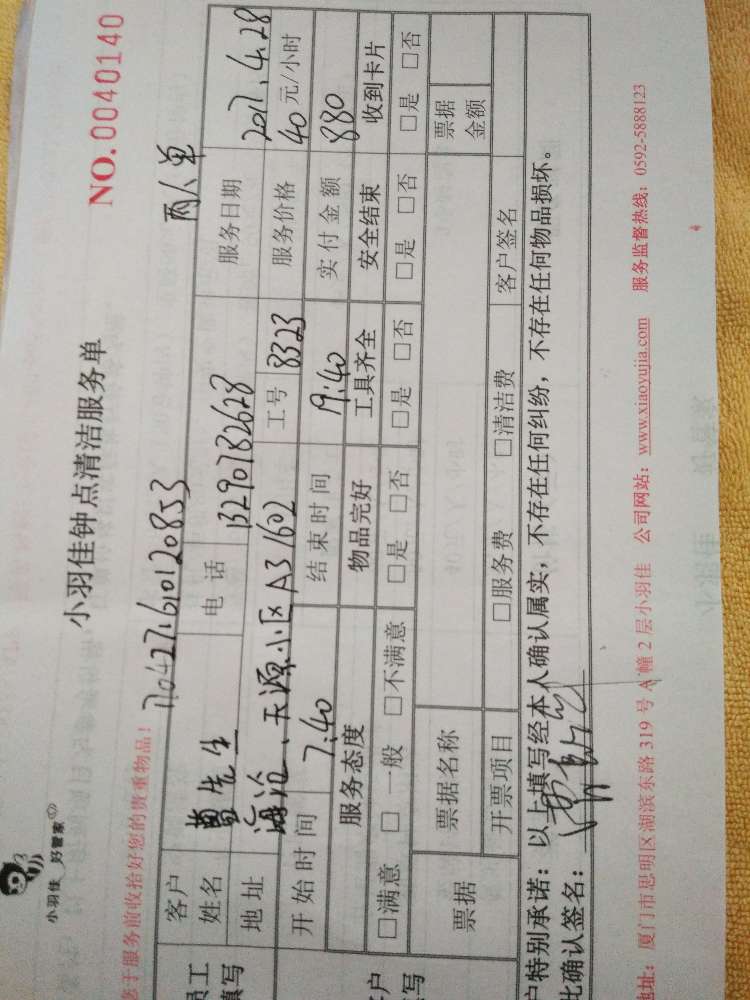 小羽佳 好管家
小羽佳钟点清洁服务单
NO.0040140
您于服务前收拾好您的贵重物品!
1704271610120853
两人单
员工
填写
客户
姓名
曹先生
电话
13290782628
服务日期
2017.4.28
地址
海沧、天源小区A31602
工号
8323
服务价格
40元/小时
开始时间
7:40
结束时间
19:40
实付金额
880
服务态度
物品完好
工具齐全
安全结束
收到卡片
□满意 □一般 □不满意
□是 □否
□是 □否
□是 □否
□是 □否
户
写
票据
票据名称
票据
金额
开票项目
□服务费
□清洁费
客户签名
户特别承诺:以上填写经本人确认属实,不存在任何纠纷,不存在任何物品损坏。
此确认签名:
地址:厦门市思明区湖滨东路319号A幢2层小羽佳 公司网站:www.xiaoyujia.com 服务监督热线:0592-5888123